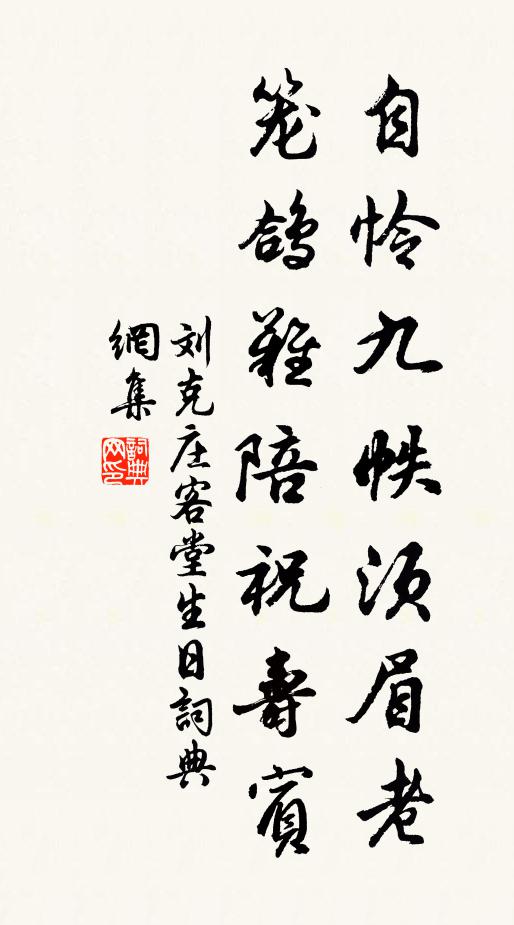 自怜九帙须眉老
笼鸽难陪祝壽賓
刘克庄客堂生日詞典
網集
詞典
网印